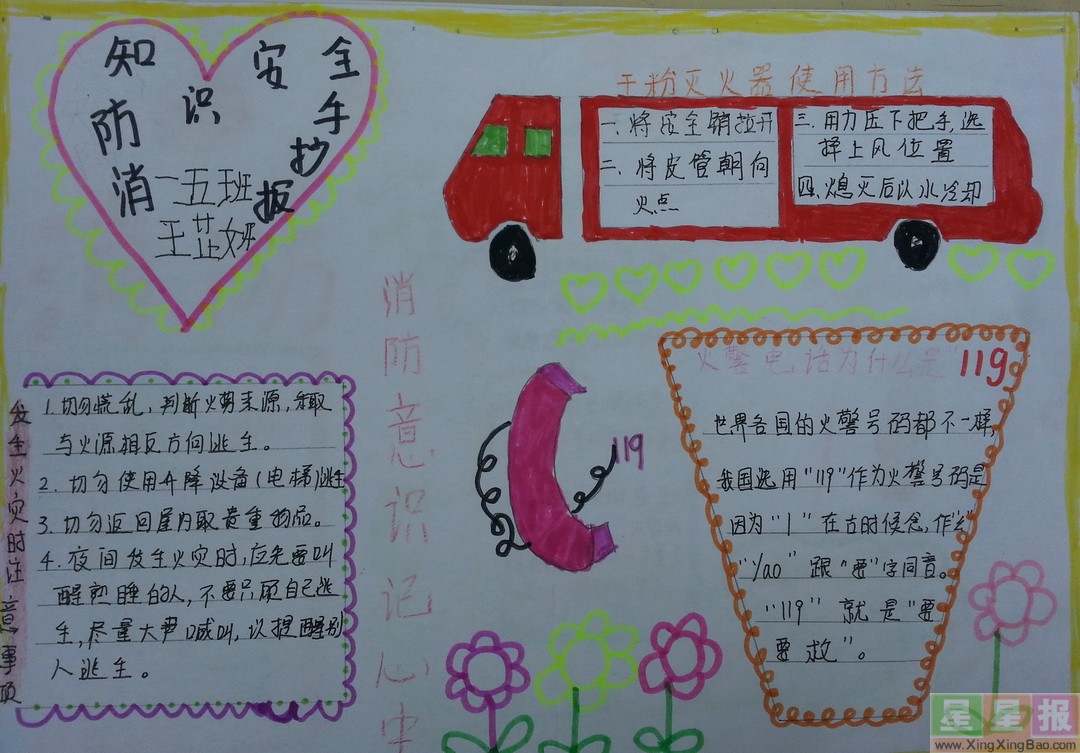 消防知识安全手抄报
一五班
王芷妍
干粉灭火器使用方法
一、将安全销拉开
二、将皮管朝向
火点
三、用力压下把手,选
择上风位置
四、熄灭后以水冷却
消防意识记心中
发生火灾时注意事项
1.切勿慌乱,判断火势来源,采取
与火源相反方向逃生。
2.切勿使用升降设备(电梯)逃生
3.切勿返回屋内取贵重物品。
4.夜间发生火灾时,应先要叫
醒熟睡的人,不要只顾自己逃
生,尽量大声喊叫,以提醒别
人逃生。
119
火警电话为什么是"119
世界各国的火警号码都不一样,
我国选用"119"作为火警号码是
因为"1"在古时候念,作"幺"
"Yao"跟"要"字同音。
"119"就是"要
要救"。
星星报
www.XingXingBao.com